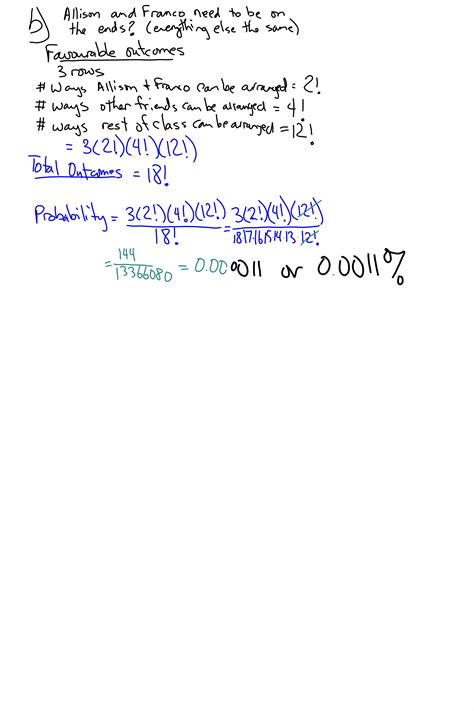 b) Allison and Franco need to be on
the ends? (everything else the same)
Favourable outcomes
3 rows
# ways Allison + Franco can be arranged = 2!
# ways other friends can be arranged = 4!
# ways rest of class can be arranged = 12!
= 3(2!)(4!)(12!)
Total Outcomes = 18!
Probability = 3(2!)(4!)(12!)/18! = 3(2!)(4!)(12!)/18·17·16·15·14·13·12!
= 144/13366080 = 0.000011 or 0.0011%